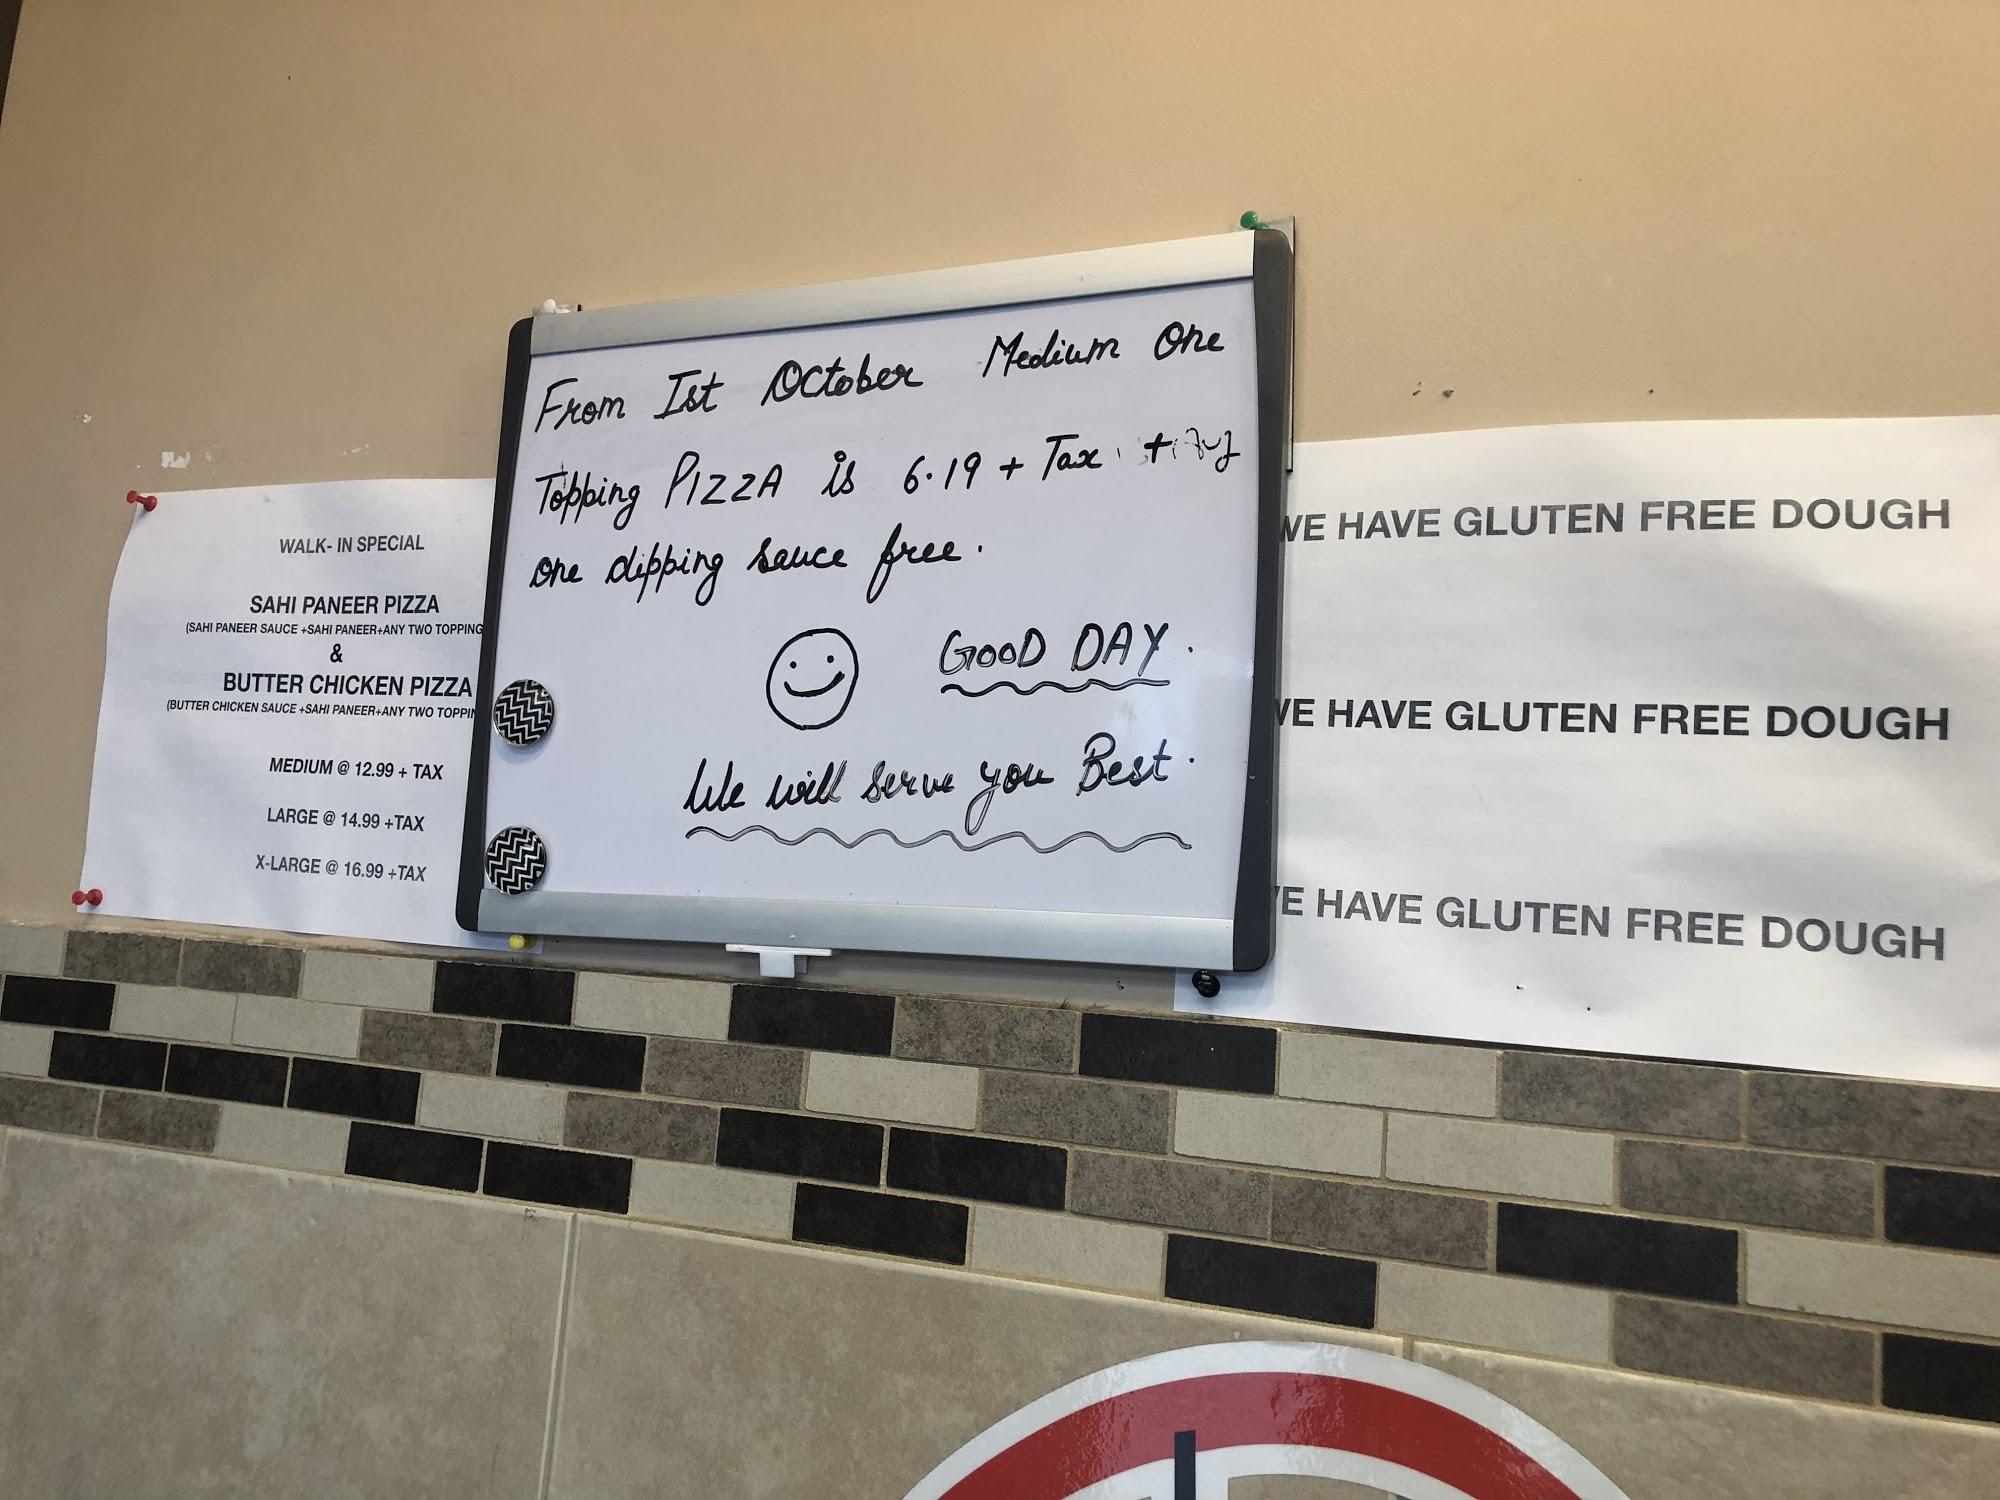 WALK- IN SPECIAL
SAHI PANEER PIZZA
(SAHI PANEER SAUCE +SAHI PANEER+ANY TWO TOPPING
&
BUTTER CHICKEN PIZZA
(BUTTER CHICKEN SAUCE +SAHI PANEER+ANY TWO TOPPIN
MEDIUM @ 12.99 + TAX
LARGE @ 14.99 +TAX
X-LARGE @ 16.99 +TAX
From Ist October Medium One
Topping PIZZA is 6.19 + Tax +
one dipping sauce free.
GOOD DAY.
We will serve you Best.
WE HAVE GLUTEN FREE DOUGH
WE HAVE GLUTEN FREE DOUGH
WE HAVE GLUTEN FREE DOUGH